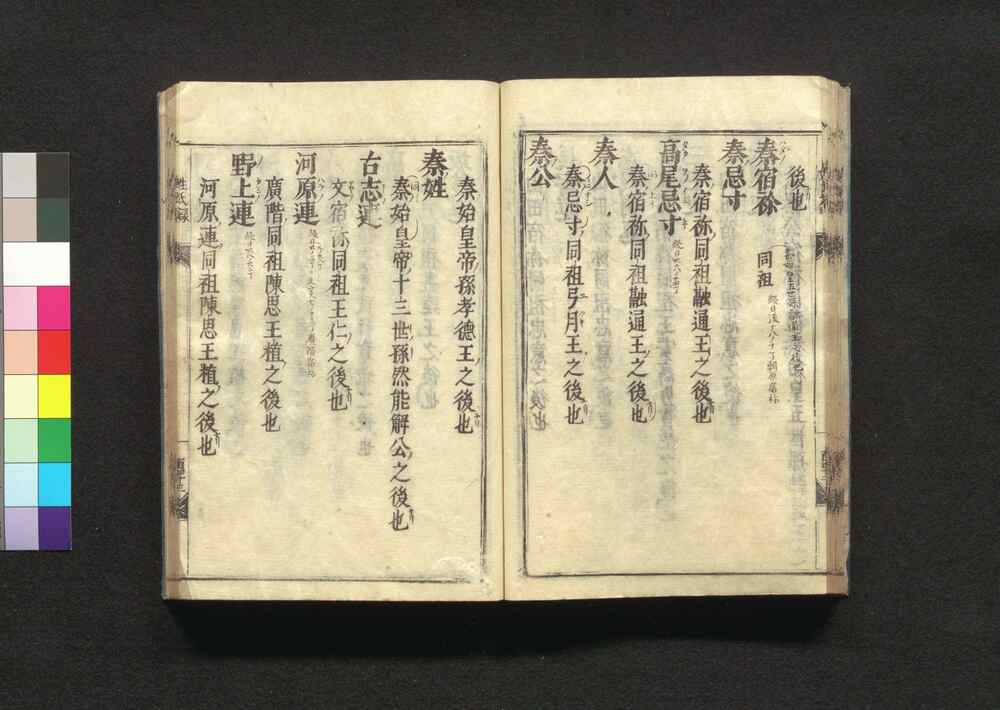 後也
秦宿祢
同祖
秦忌寸
秦宿祢同祖融通王之後也
高尾忌寸
秦宿祢同祖融通王之後也
秦人
秦忌寸同祖弓月王之後也
秦公
秦始皇帝孫孝德王之後也
秦姓
秦始皇帝十三世孫然能解公之後也
古志連
文宿祢同祖王仁之後也
河原連
廣階同祖陳思王植之後也
野上連
河原連同祖陳思王植之後也
姓氏録